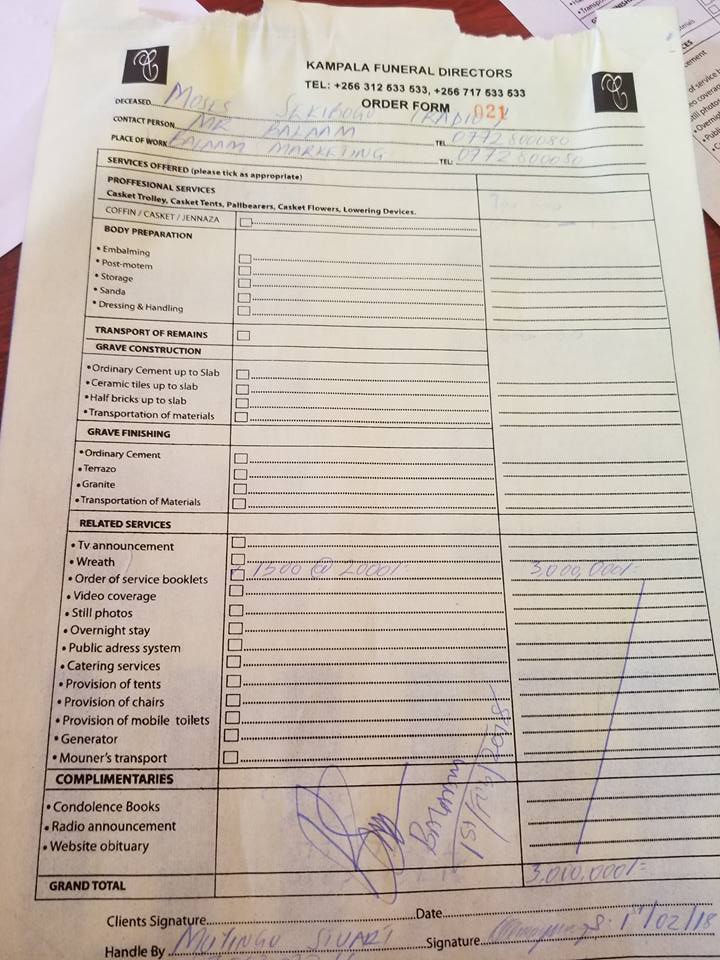 KAMPALA FUNERAL DIRECTORS
TEL: +256 312 533 533, +256 717 533 533
ORDER FORM 021
DECEASED MOSES SEKIBOGO (RADIO)
CONTACT PERSON MR BALAAM TEL 0772 800080
PLACE OF WORK BALAAM MARKETING TEL: 0772 800080
SERVICES OFFERED (please tick as appropriate)
PROFFESIONAL SERVICES
Casket Trolley, Casket Tents, Pallbearers, Casket Flowers, Lowering Devices.
COFFIN / CASKET / JENNAZA
BODY PREPARATION
• Embalming
• Post-motem
• Storage
• Sanda
• Dressing & Handling
TRANSPORT OF REMAINS
GRAVE CONSTRUCTION
• Ordinary Cement up to Slab
• Ceramic tiles up to slab
• Half bricks up to slab
• Transportation of materials
GRAVE FINISHING
• Ordinary Cement
• Terrazo
• Granite
• Transportation of Materials
RELATED SERVICES
• Tv announcement
• Wreath
• Order of service booklets 1500 @ 2000/- 3,000,000/-
• Video coverage
• Still photos
• Overnight stay
• Public adress system
• Catering services
• Provision of tents
• Provision of chairs
• Provision of mobile toilets
• Generator
• Mouner's transport
COMPLIMENTARIES
• Condolence Books
• Radio announcement
• Website obituary
GRAND TOTAL 3,000,000/-
Clients Signature Date
Handle By MUTINGO STUART Signature 1st/02/18